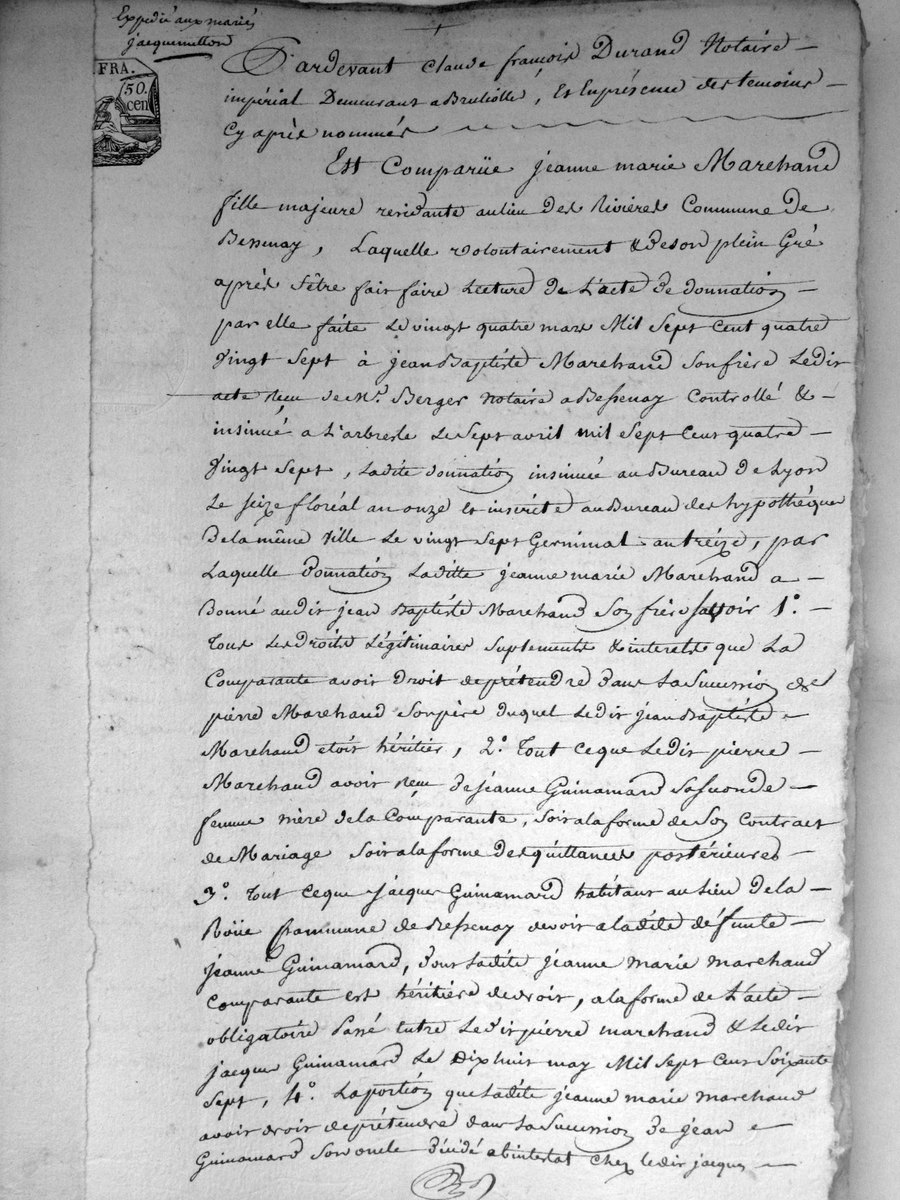 Expedié aux mariés
jacquemetton
FRA.
50.
cen
Pardevant Claude françois Durand Notaire
impérial Demeurant a Brulliolle, Et Enprésence des temoins
Cy après nommés
Est Comparüe jeanne marie Marchand
fille majeure residante aulieu des Rivières Commune De
Bessenay, Laquelle volontairement & deson plein Gré
après s'être fait faire Lecture de L'acte de donnation
par elle faite Le vingt quatre mars Mil Sept Cent quatre
vingt Sept à jean Baptiste Marchand Son frère Ledit
acte reçu de Me. Berger Notaire a Bessenay Controllé &
insinué a L'arbresle Le Sept avril mil Sept Cent quatre
vingt Sept, Ladite donnation insinuée au Bureau de Lyon
Le Seize floréal an onze et inscrite au Bureau des hypothèques
De la même ville Le vingt Sept Germinal an treize, par
Laquelle donnation Laditte jeanne marie Marchand a
Donné audit jean Baptiste Marchand Son frère Savoir 1°.
Tous Les Droits Légitimaires Suplements & interets que La
Comparante avoit Droit de prétendre dans La Succession de
pierre Marchand Son père duquel Ledit jean Baptiste
Marchand etoit héritier, 2°. Tout ce que Ledit pierre
Marchand avoit reçu de jeanne Guinamard Sa Seconde
femme mère de la Comparante, Soit a la forme de Son Contract
de Mariage Soit a la forme des quittances postérieures
3°. Tout ce que jacques Guinamard habitant au Lieu de la
Roüe Commune de Bessenay devoit a la dite défunte
jeanne Guinamard, dont Ladite jeanne marie marchand
Comparante est héritière de droit, a la forme de L'acte
obligatoire Passé entre Ledit pierre marchand & Ledit
jacques Guinamard Le Dix huit may Mil Sept Cent Soixante
Sept, 4°. La portion que Ladite jeanne marie marchand
avoit droit de prétendre dans La Succession de jean
Guinamard Son oncle décédé abintestat Chez Ledit jacques